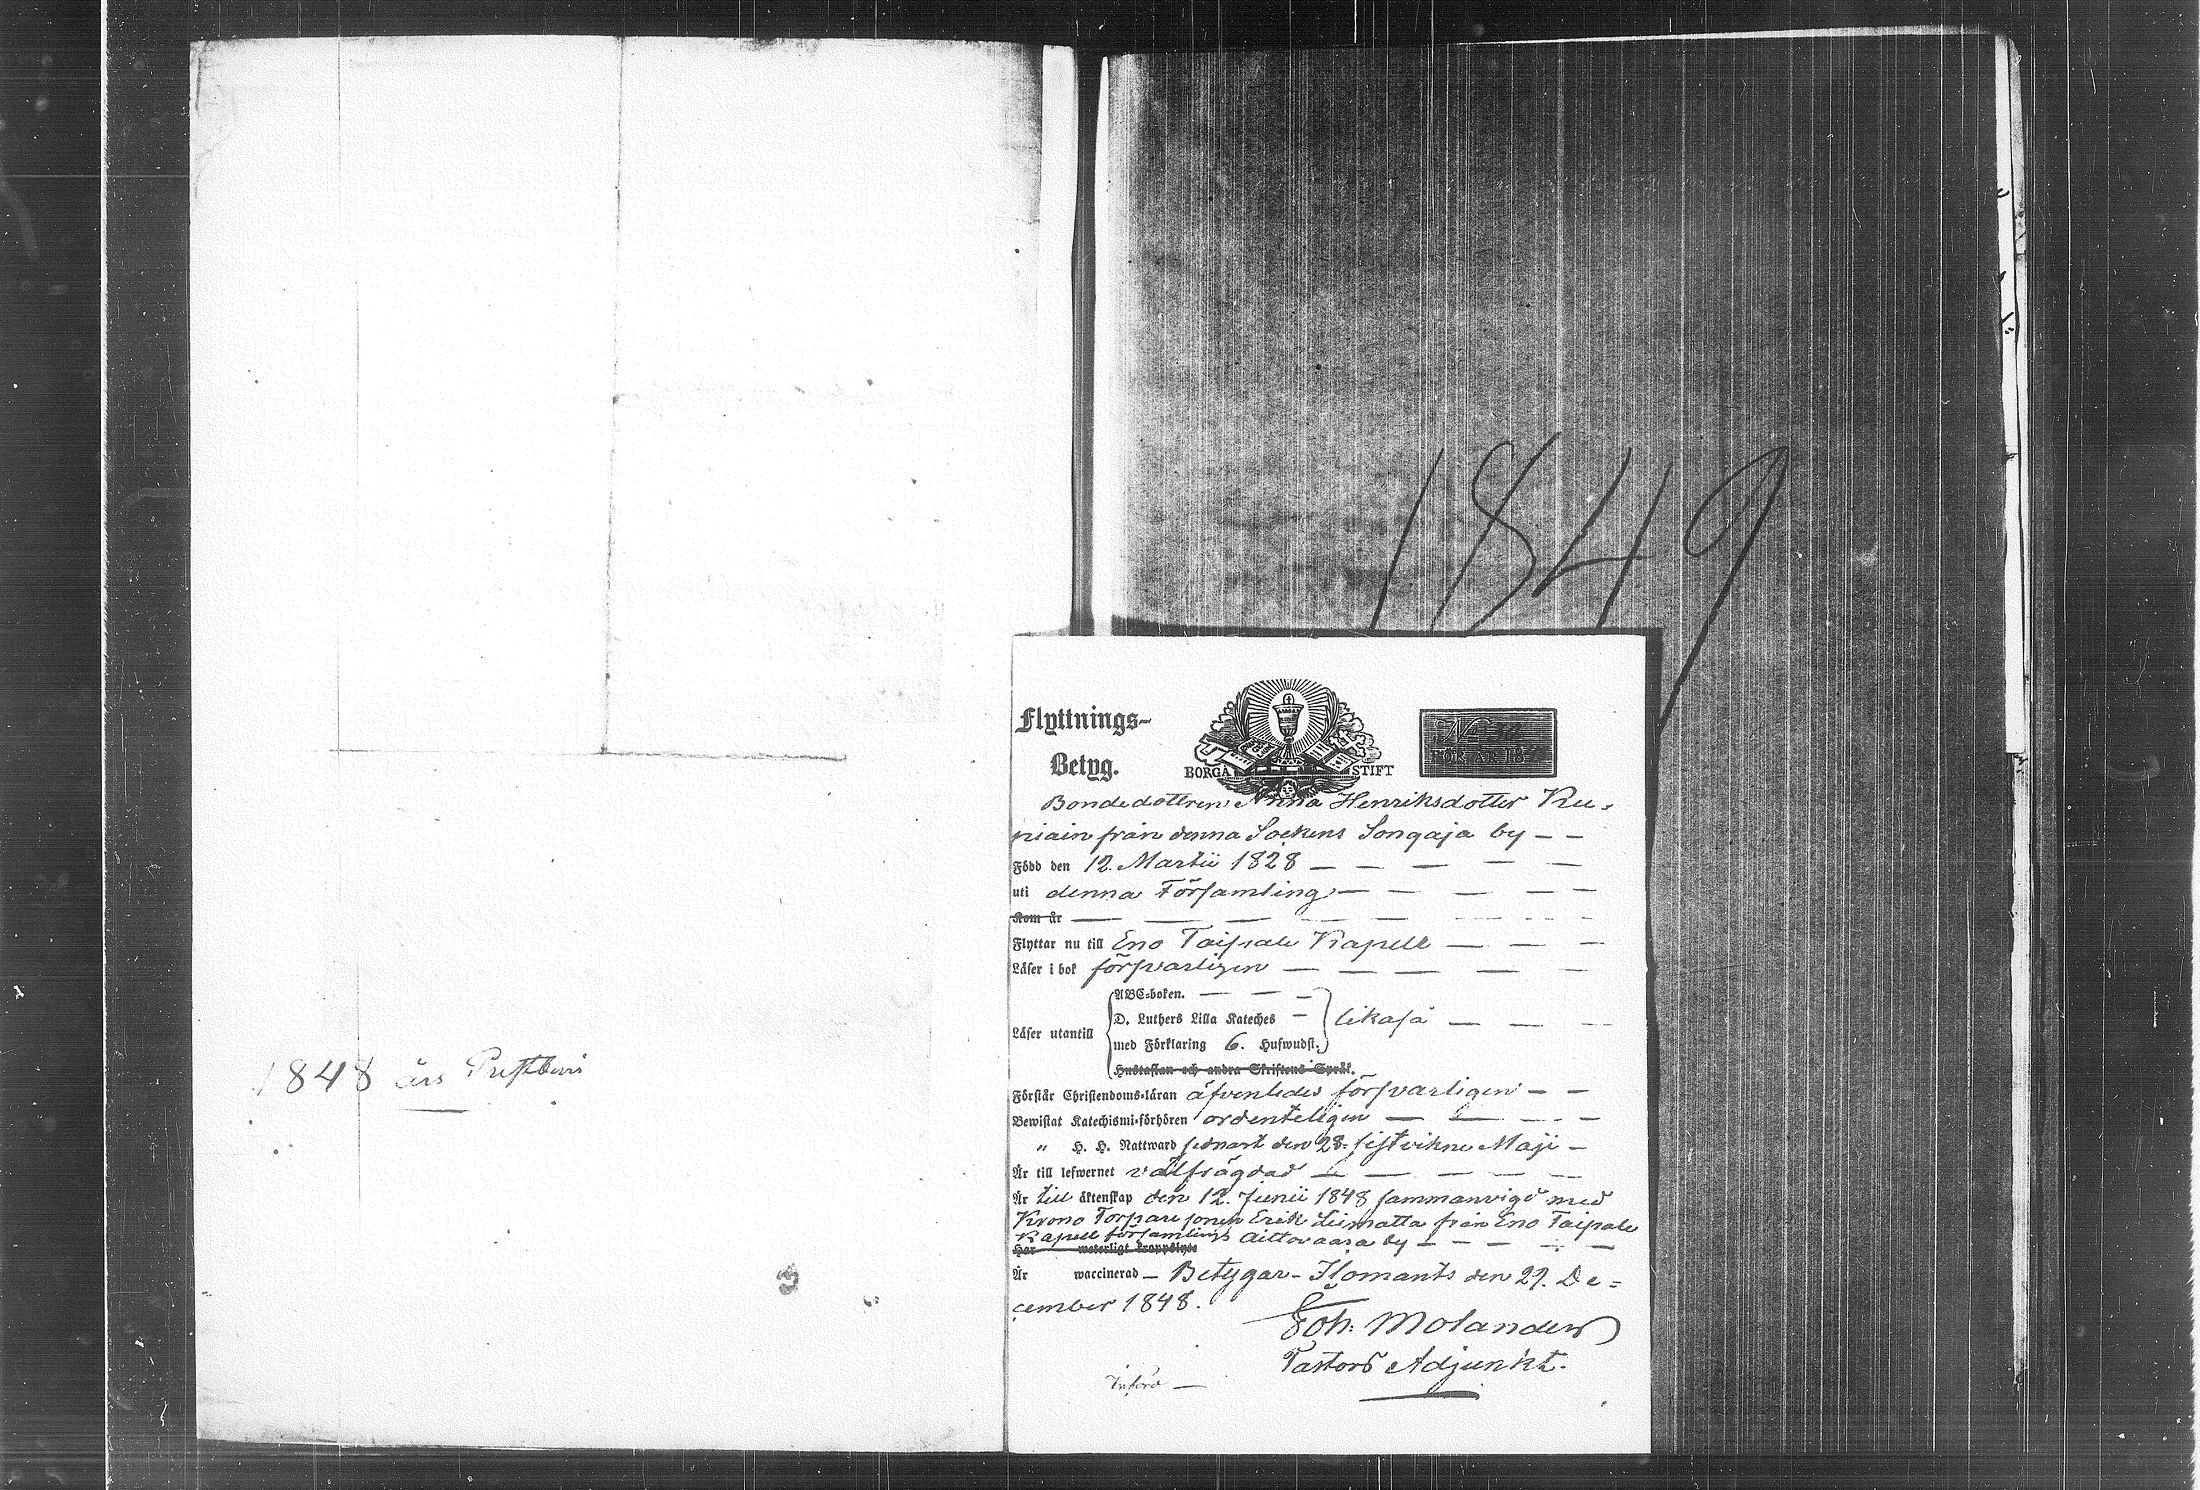 1848 års Prestbevis
1849
Flyttnings-
Betyg.
BORGÅ STIFT
FÖR ÅR 18
Bondedottren Anna Henriksdotter Ku-
piain från denna Sockens Songaja by — —
Född den 12. Martii 1828 — — — — —
uti denna Församling — — — — —
Kom år — — — — —
Flyttar nu till Eno Taipale Kapell — — —
Läser i bok försvarligen — — — — —
ABC-boken. — — —
Läser utantill D. Luthers Lilla Kateches — likaså — — —
med Förklaring 6. Hufwudst.
Hustaflan och andra Skriftens Språk.
Förstår Christendoms-läran äfvenledes försvarligen — —
Bewistat Katechismi-förhören ordenteligen — — — —
" H. H. Nattward sednast den 28. sistvikne Maji —
Är till lefwernet välfrägdad — — — — —
Är till äktenskap den 12. Junii 1848 sammanvigd med
Krono Torpare sonen Erik Leimatta från Eno Taipale
Kapell församlings Aittovaara by — — — — —
Har weterligt kroppslyte
Är waccinerad — Betygar — Ilomants den 29. De-
cember 1848.
Joh: Molander
Pastors Adjunkt.
Införd —